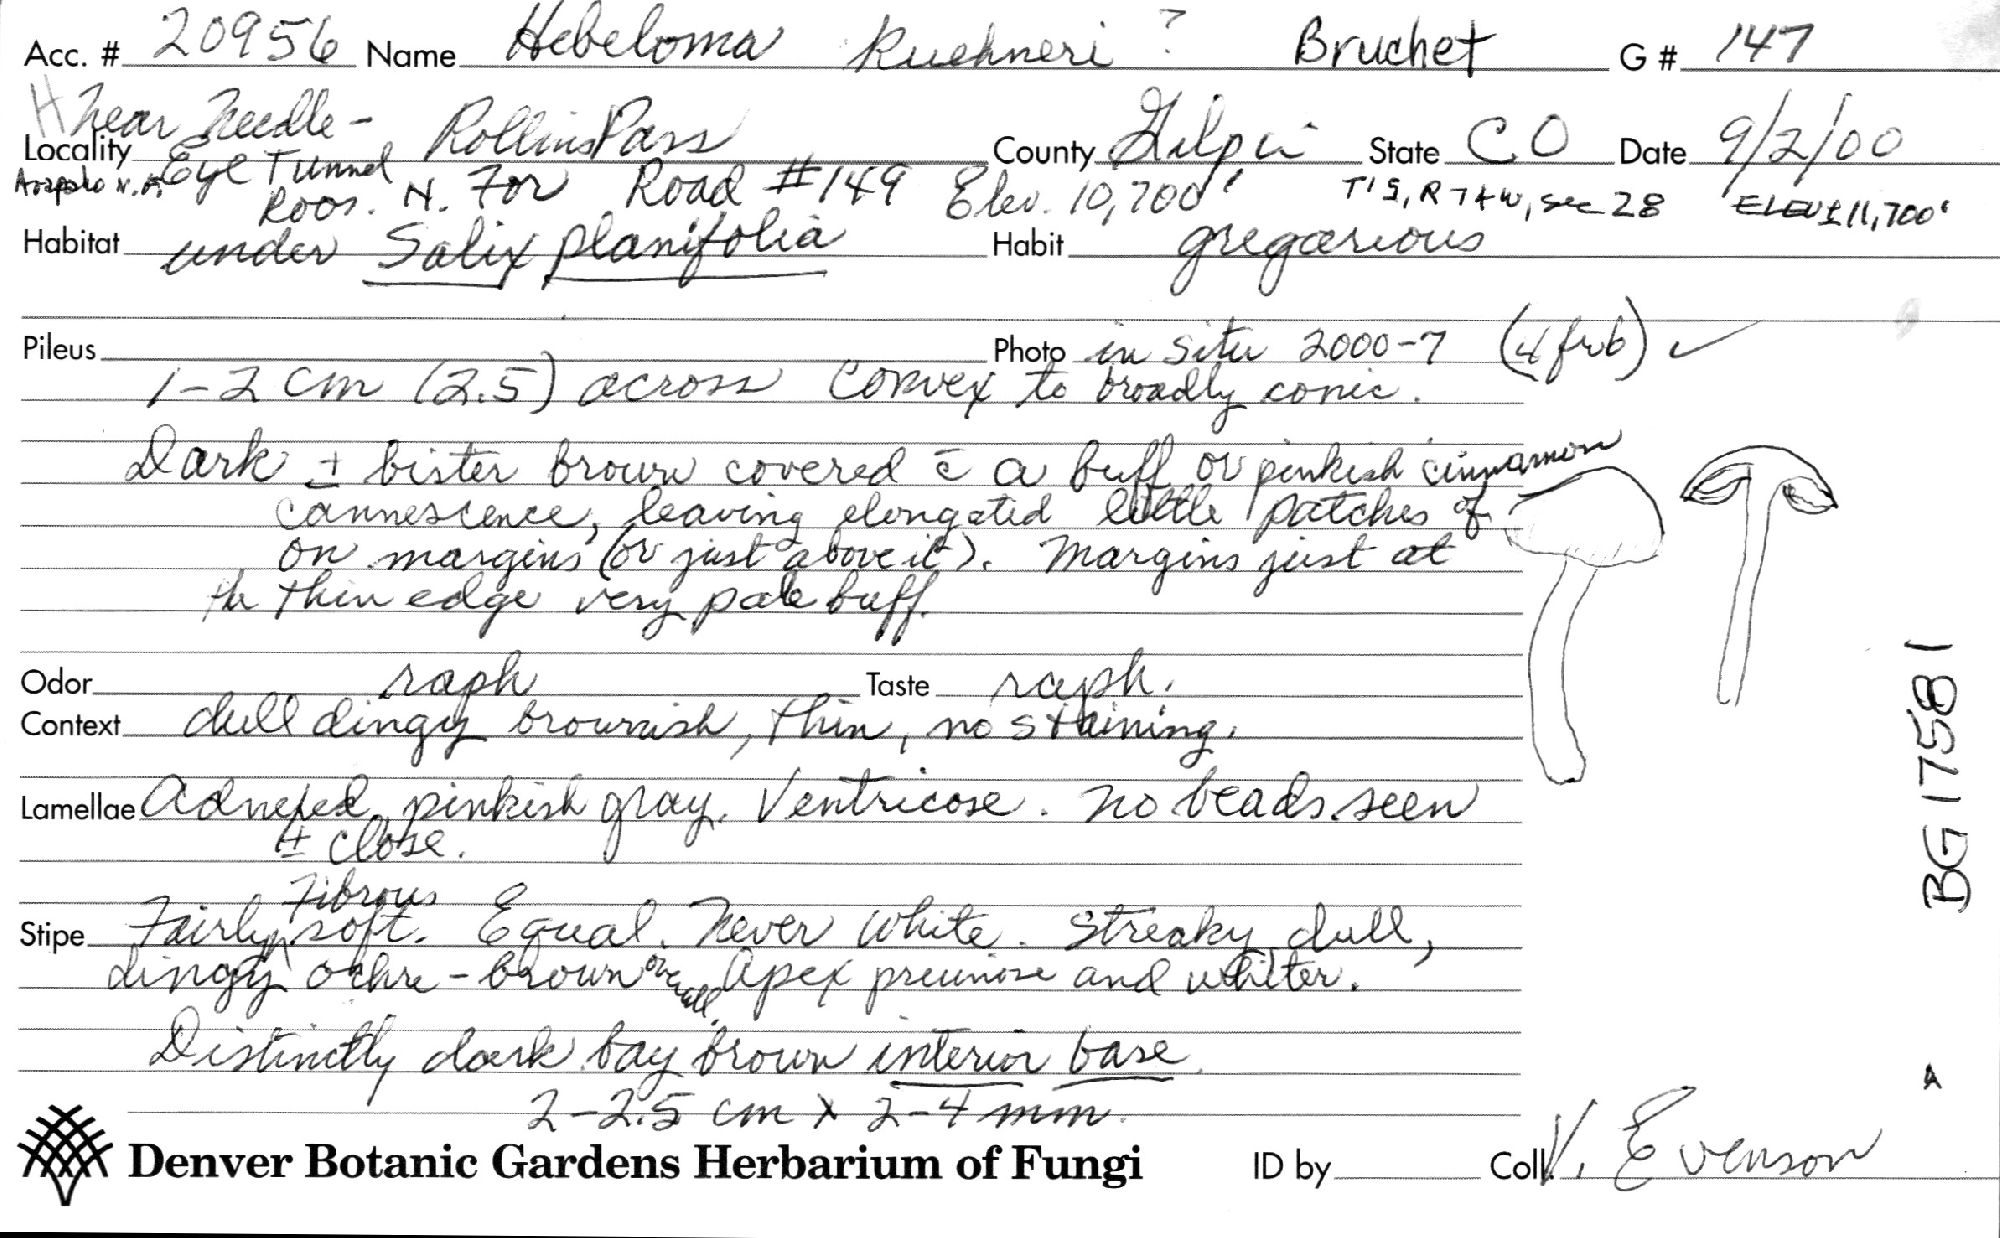 Acc. # 20956 Name Hebeloma Kuehneri ? Bruchet G # 147
near Needle-
Locality Eye Tunnel Rollins Pass County Gilpin State CO Date 9/2/00
Arapaho N.F. Roos. N. For Road #149 Elev. 10,700' T1S, R74W, sec 28 ELEV ± 11,700'
Habitat under Salix planifolia Habit gregarious
Pileus Photo in situ 2000-7 (4 frb) ✓
1-2 cm (2.5) across convex to broadly conic.
Dark ± bister brown covered c̄ a buff or pinkish cinnamon
cannescence, leaving elongated little patches of
on margins (or just above it). Margins just at
the thin edge very pale buff.
Odor raph Taste raph.
Context dull dingy brownish, thin, no staining.
Lamellae Adnexed, pinkish gray. Ventricose. no beads seen
± close.
Fibrous
Stipe Fairly soft. Equal. Never white. Streaky dull,
dingy ochre-brown overall. Apex pruinose and whiter.
Distinctly dark bay brown interior base.
2-2.5 cm x 2-4 mm.
Denver Botanic Gardens Herbarium of Fungi ID by Coll. V. Evenson
BG 17581
A